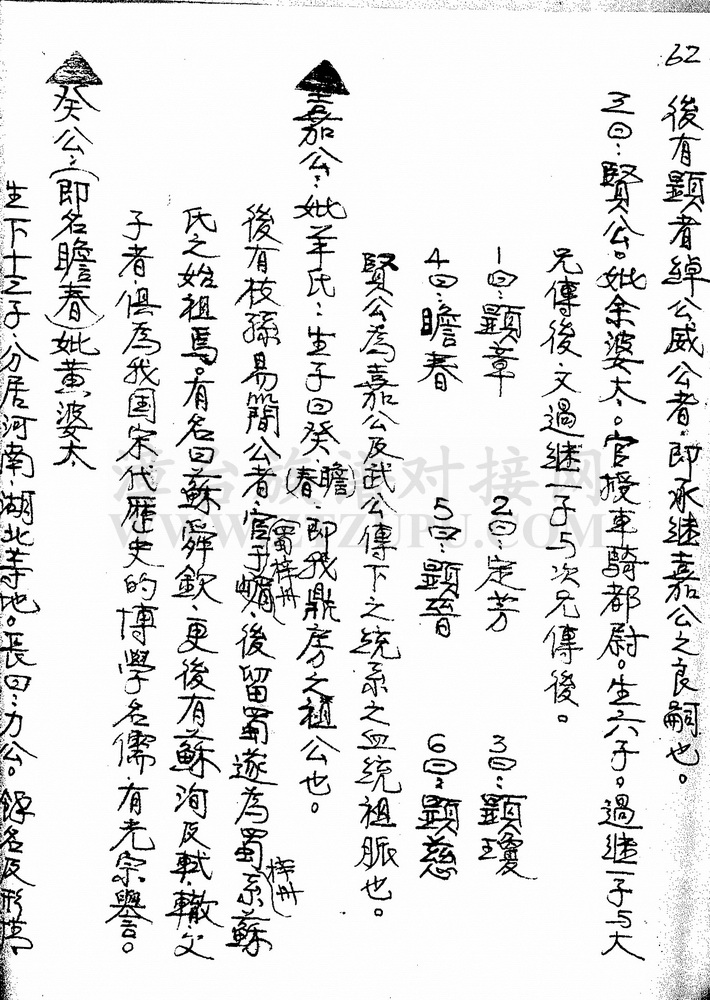 62
後有顕者綽公威公者．即承继嘉公之良嗣也。
三曰：賢公。妣余婆太。官授車騎都尉。生六子。過继一子与大
兄傳後．又過继一子与次兄傳後。
1曰：顕章 2曰：定芳 3曰：顕瓊
4曰：瞻春 5曰：顕晉 6曰：顕慈
賢公為嘉公及武公傳下之統系之血統祖脈也。
嘉公：妣羊氏：生子曰癸．(瞻春)．即我鼎房之祖公也。
後有枝孫易簡公者．官于(蜀梓州)．後留蜀遂為蜀系(梓州)蘇
氏之始祖馬。有名曰蘇舜欽．更後有蘇洵及軾．轍．父
子者．俱為我国宋代歷史的博学名儒．有光宗譽。
癸公：(即名瞻春)妣黄婆太
生下十之子．分居河南．湖北等地。長曰：力公。錄名及形
漳台族谱对接网
WWW.ZTZUPU.COM